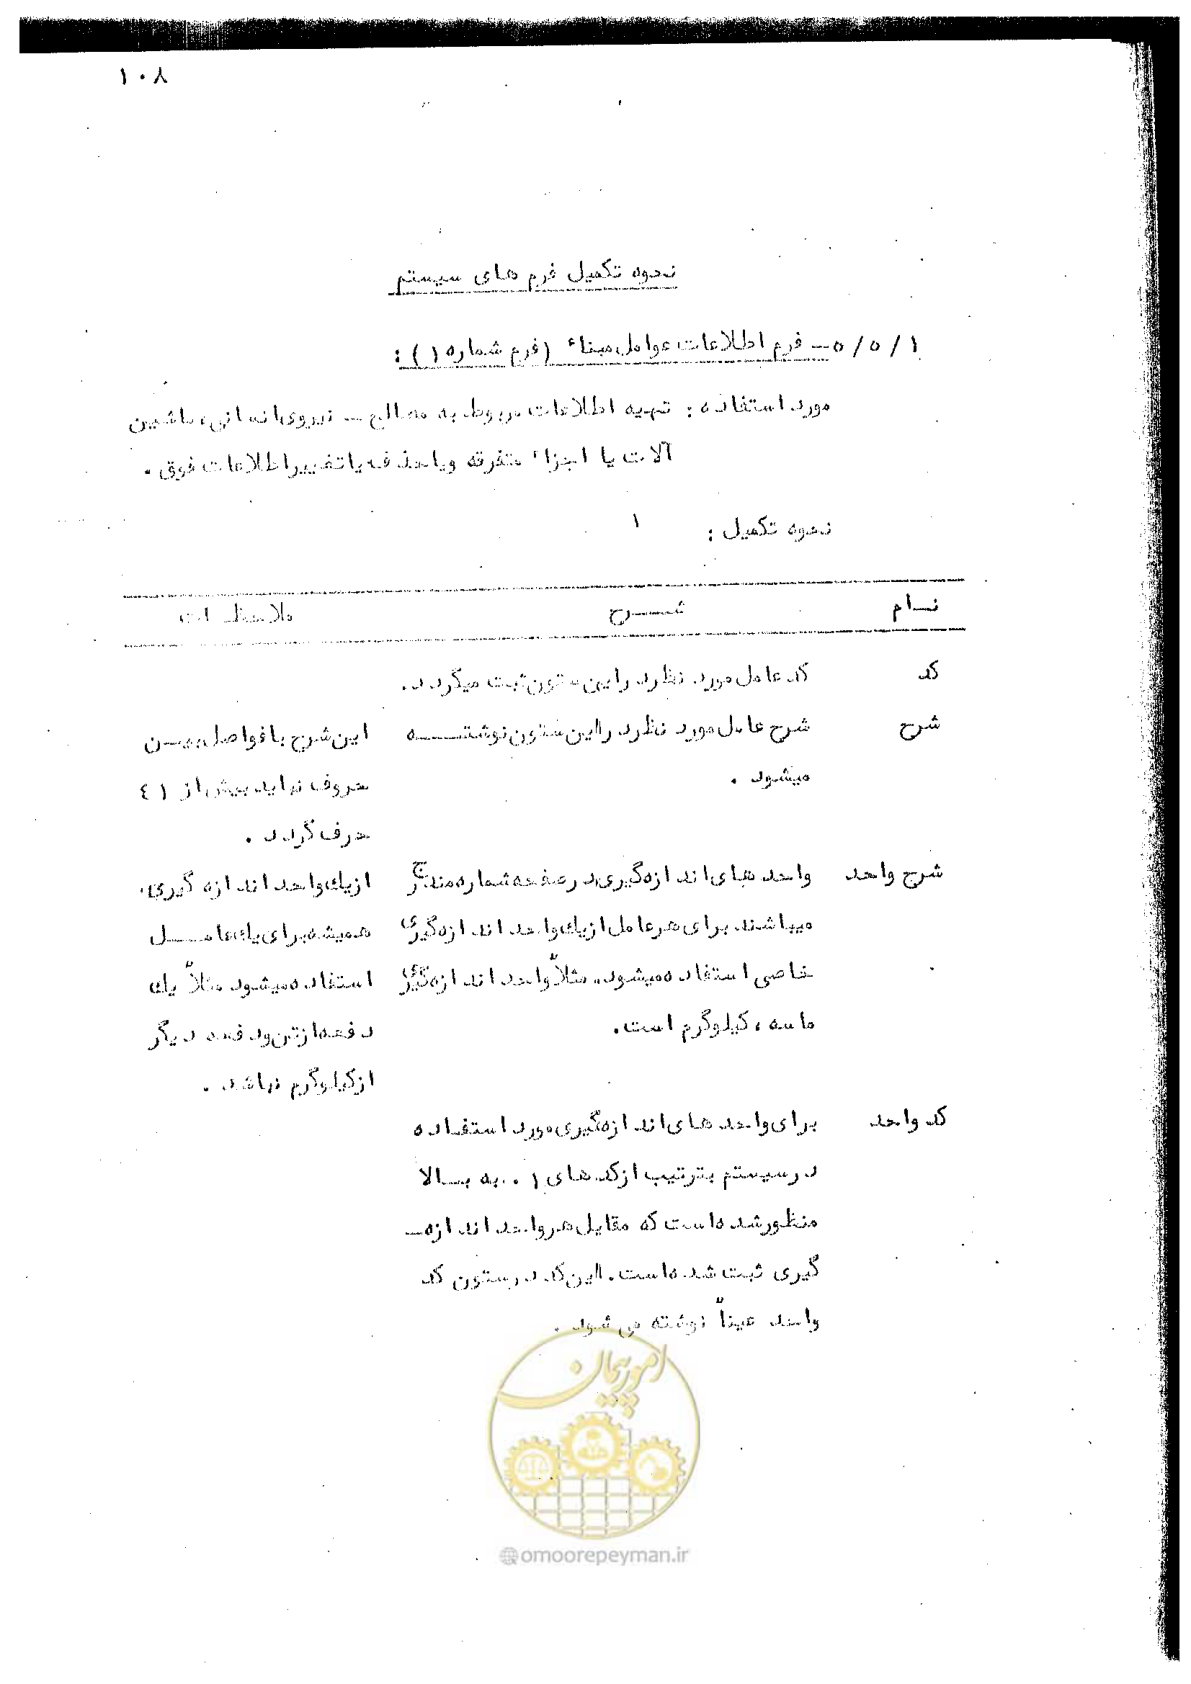 ۱۰۸
نحوه تکمیل فرم های سیستم
۵/۵/۱- فرم اطلاعات عوامل مبناء (فرم شماره ۱) :
مورد استفاده : تهیه اطلاعات مربوط به مصالح - نیروی انسانی، ماشین
آلات یا اجزاء متفرقه ویا حذف یا تغییر اطلاعات فوق .
نحوه تکمیل :
نـام شـــرح ملاحظـات
کد کد عامل مورد نظر در این ستون ثبت میگردد.
شرح شرح عامل مورد نظر در این ستون نوشتـــه این شرح با فواصل بیـن
میشود . حروف نباید بیش از ٤١
حرف گردد .
شرح واحد واحد های اندازه گیری در صفحه شماره مندرج از یك واحد اندازه گیری
میباشند برای هر عامل از یك واحد اندازه گیری همیشه برای یك عامـــل
خاصی استفاده میشود. مثلاً واحد اندازه گیری استفاده میشود مثلاً یك
ماسه ، کیلوگرم است. دفعه از تن و دفعه دیگر
از کیلوگرم نباشد .
کد واحد برای واحد های اندازه گیری مورد استفـاده
در سیستم بترتیب از کد های ۰۰۱ به بـالا
منظور شده است که مقابل هر واحد اندازه-
گیری ثبت شده است. این کد در ستون کد
واحد عیناً نوشته می شود .
امور پیمان
@omoorepeyman.ir